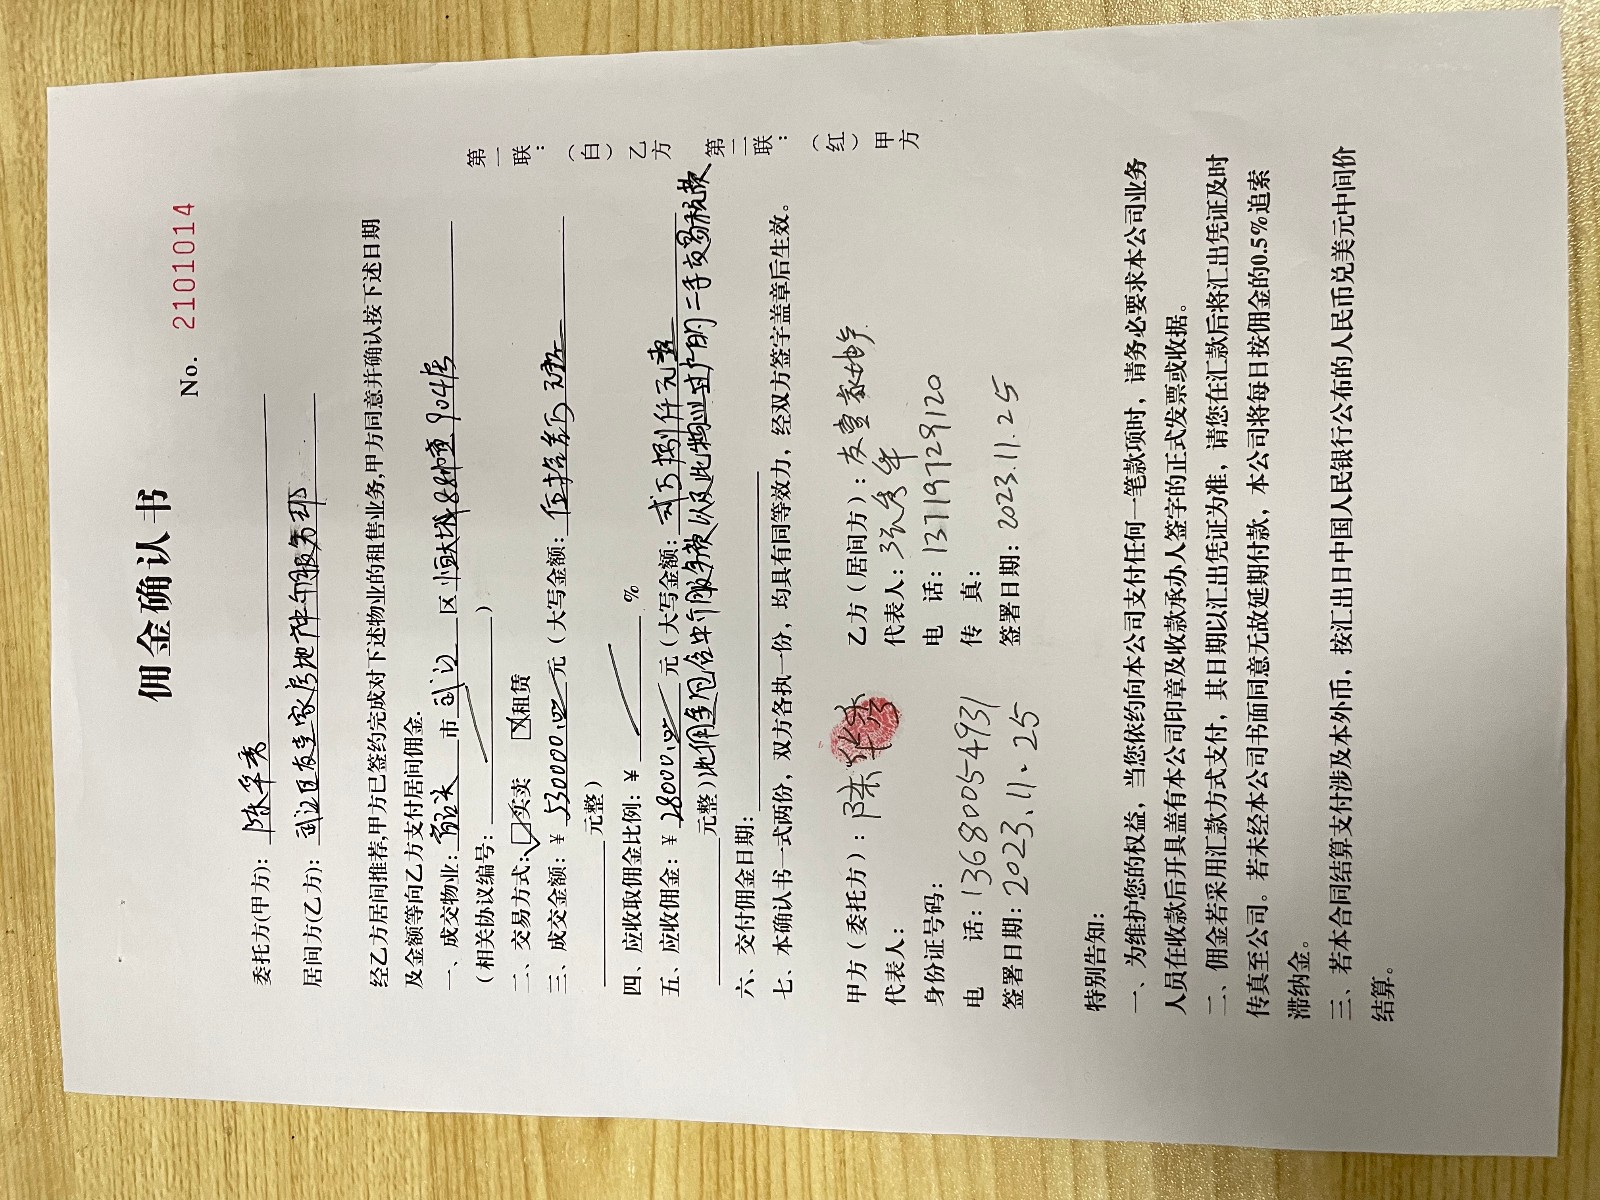 佣金确认书
No. 2101014
委托方(甲方): 陈华秀
居间方(乙方): 武江区友壹家房地产中介服务部
经乙方居间推荐,甲方已签约完成对下述物业的租售业务,甲方同意并确认按下述日期
及金额等向乙方支付居间佣金.
一、成交物业: 韶关 市 武江 区 恒大城88幢 904房
(相关协议编号: )
二、交易方式: ☑买卖 ☒租赁
三、成交金额: ¥ 530000.00 元 (大写金额: 伍拾叁万元整
元整)
四、应收取佣金比例: ¥ %
五、应收佣金: ¥ 28000.00 元 (大写金额: 贰万捌仟元整
元整) 此佣金包含中介服务费以及此物业过户的二手交易税费
六、交付佣金日期:
七、本确认书一式两份，双方各执一份，均具有同等效力，经双方签字盖章后生效。
第一联：（白）乙方 第二联：（红）甲方
甲方（委托方）: 陈华秀
代表人:
身份证号码:
电 话: 13680054931
签署日期: 2023.11.25
乙方（居间方）: 友壹家
代表人: 张秀年
电 话: 13719729120
传 真:
签署日期: 2023.11.25
特别告知:
一、为维护您的权益，当您依约向本公司支付任何一笔款项时，请务必要求本公司业务
人员在收款后开具盖有本公司印章及收款承办人签字的正式发票或收据。
二、佣金若采用汇款方式支付，其日期以汇出凭证为准，请您在汇款后将汇出凭证及时
传真至公司。若未经本公司书面同意无故延期付款，本公司将每日按佣金的0.5%追索
滞纳金。
三、若本合同结算支付涉及本外币，按汇出日中国人民银行公布的人民币兑美元中间价
结算。